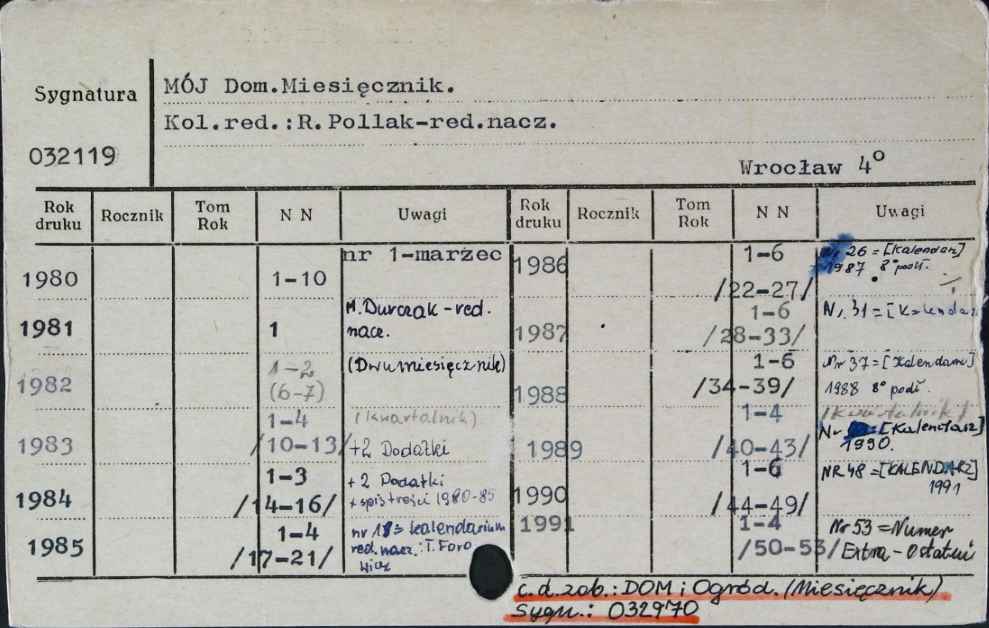 Sygnatura
032119
MÓJ Dom.Miesięcznik.
Kol.red.:R.Pollak-red.nacz.
Wrocław 4°
Rok druku Rocznik Tom Rok N N Uwagi
nr 1-marzec
1980 1-10
1981 1 M.Durczak-red. nacz.
1982 1-2 (6-7) (Dwumiesięcznik)
1983 1-4 /10-13/ (kwartalnik) +2 Dodatki
1984 1-3 /14-16/ + 2 Dodatki + spis treści 1980-85
1985 1-4 /17-21/ = kalendarium red.nacz.: T.
Rok druku Rocznik Tom Rok N N Uwagi
1986 1-6 /22-27/ Nr 26 = [Kalendarz] 1987 8° podł.
1987 1-6 /28-33/ Nr 31 = [Kalendarz
1988 1-6 /34-39/ Nr 37 = [Kalendarz] 1988 8° podł.
1989 1-4 /40-43/ /kwartalnik/ Nr = [Kalendarz] 1990.
1990 1-6 /44-49/ NR 48 = [KALENDARZ] 1991
1991 1-4 /50-53/ Nr 53 = Numer Extra-Ostatni
c.d.zob.: DOM i Ogród. (Miesięcznik)
Sygn.: 032970